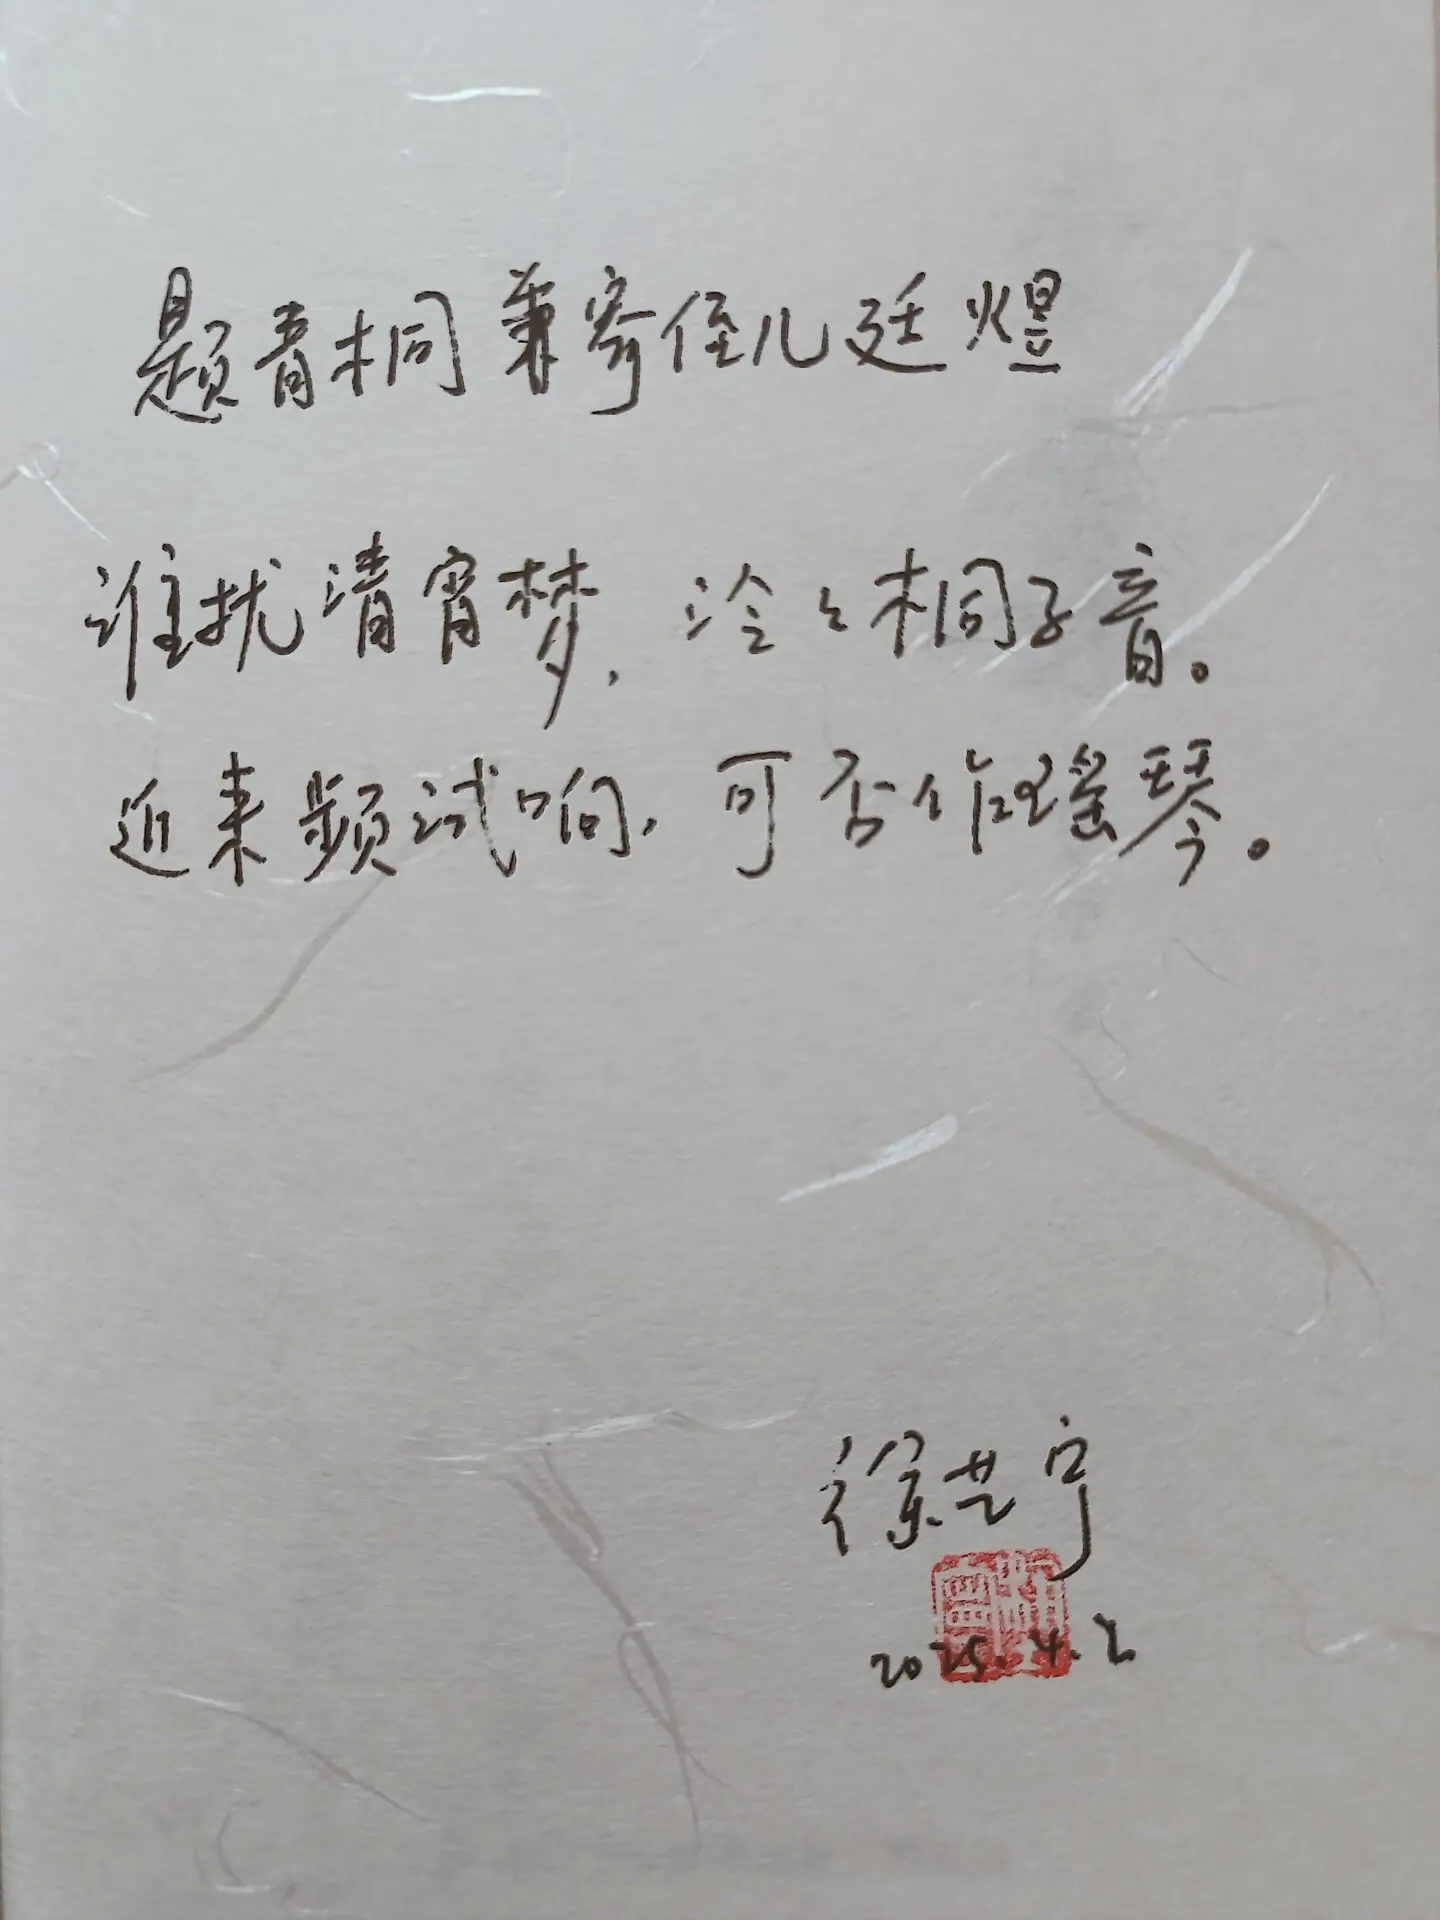 题青桐兼寄侄儿廷煜
谁扰清宵梦，泠々桐子音。
近来频试响，可否作瑶琴。
徐艺宁
2025.4.2